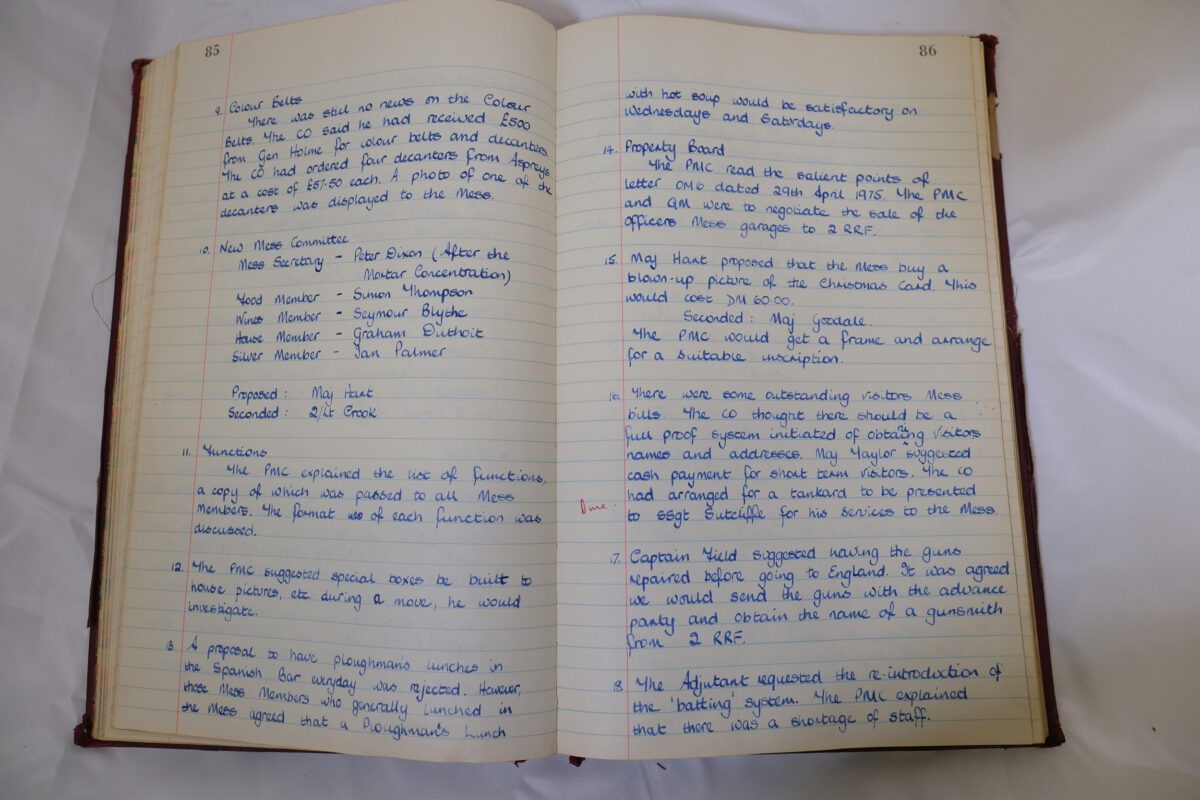 85
9. Colour Belts
There was still no news on the Colour
Belts. The CO said he had received £500
from Gen Holme for colour belts and decanters.
The CO had ordered four decanters from Aspreys
at a cost of £57.50 each. A photo of one of the
decanters was displayed to the Mess.
10. New Mess Committee
Mess Secretary - Peter Dixon (After the
Mortar Concentration)
Food Member - Simon Thompson
Wines Member - Seymour Blythe
House Member - Graham Duthoit
Silver Member - Ian Palmer
Proposed: Maj Hunt
Seconded: 2/Lt Crook
11. Functions
The PMC explained the list of functions,
a copy of which was passed to all Mess
Members. The format of each function was
discussed.
12. The PMC suggested special boxes be built to
house pictures, etc during a move, he would
investigate.
13. A proposal to have ploughman's lunches in
the Spanish Bar everyday was rejected. However,
those Mess Members who generally lunched in
the Mess agreed that a Ploughman's Lunch
86
with hot soup would be satisfactory on
Wednesdays and Saturdays.
14. Property Board
The PMC read the salient points of
letter OM6 dated 29th April 1975. The PMC
and QM were to negotiate the sale of the
officers Mess garages to 2 RRF.
15. Maj Hunt proposed that the Mess buy a
blown-up picture of the Christmas Card. This
would cost DM 60.00.
Seconded: Maj Goodale.
The PMC would get a frame and arrange
for a suitable inscription.
16. There were some outstanding visitors Mess
bills. The CO thought there should be a
full proof system initiated of obtaining visitors
names and addresses. Maj Taylor suggested
cash payment for short term visitors. The CO
had arranged for a tankard to be presented
Done. to SSgt Sutcliffe for his services to the Mess.
17. Captain Field suggested having the guns
repaired before going to England. It was agreed
we would send the guns with the advance
party and obtain the name of a gunsmith
from 2 RRF.
18. The Adjutant requested the re-introduction of
the 'batting' system. The PMC explained
that there was a shortage of staff.